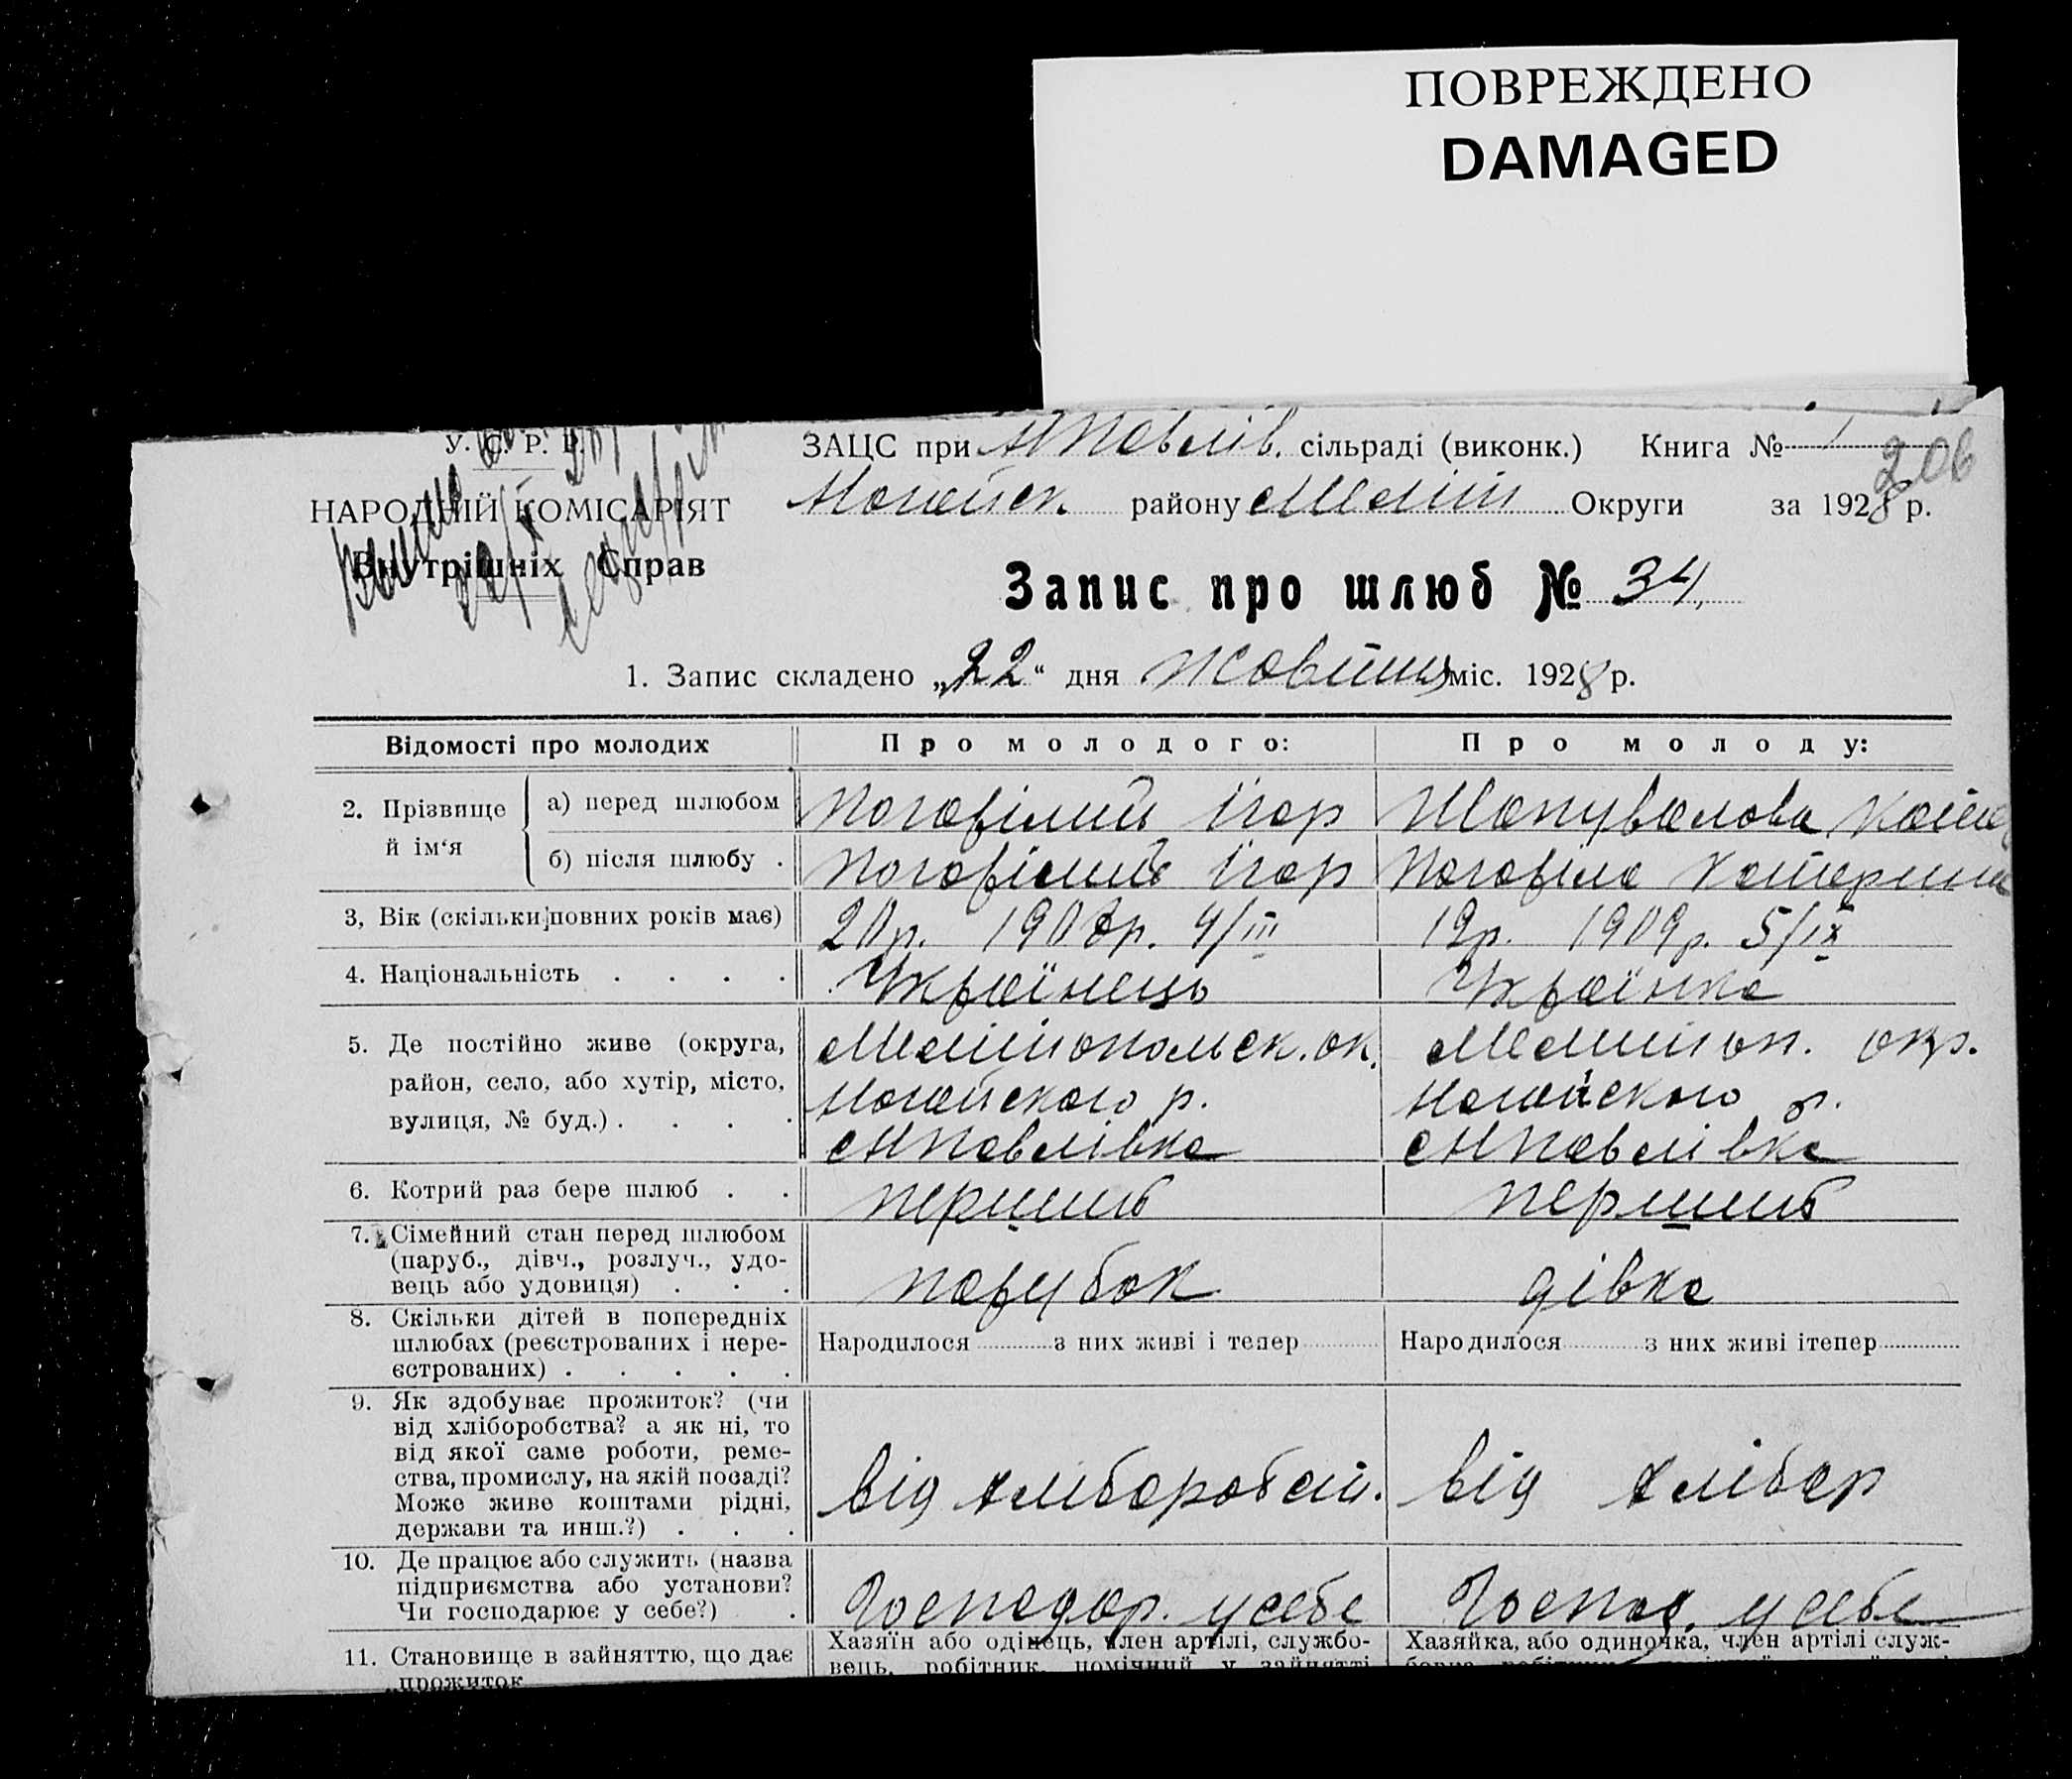 ПОВРЕЖДЕНО
DAMAGED
У. С. Р. Р.
ЗАЦС при НПавлів. сільраді (виконк.) Книга № 1
206
НАРОДНИЙ КОМІСАРІЯТ
Ногайськ. району Меліт Округи за 1928 р.
Внутрішніх Справ
Запис про шлюб № 34
1. Запис складено „22“ дня Жовтня міс. 1928 р.
Відомості про молодих Про молодого: Про молоду:
2. Прізвище й ім‘я
а) перед шлюбом Погорілий Ігор Шапувалова Катер
б) після шлюбу . Погорілий Ігор Погоріла Катерина
3, Вік (скільки повних років має) 20 р. 1908 р. 4/III 19 р. 1909 р. 5/IX
4. Національність . . . . Українець Українка
5. Де постійно живе (округа, район, село, або хутір, місто, вулиця, № буд.) . . . .
Мелітопольськ. ок. Ногайского р. НПавлівка
Мелитоп. окр. Ногайского р. НПавлівка
6. Котрий раз бере шлюб . . перший перший
7. Сімейний стан перед шлюбом
(паруб., дівч., розлуч., удо-
вець або удовиця) . . . парубок дівка
8. Скільки дітей в попередніх
шлюбах (реєстрованих і нере-
єстрованих) . . . . .
Народилося з них живі і тепер Народилося з них живі ітепер
9. Як здобуває прожиток? (чи
від хліборобства? а як ні, то
від якої саме роботи, реме-
ства, промислу, на якій посаді?
Може живе коштами рідні,
держави та инш.?) . . .
від хлібороботи. від хлібор
10. Де працює або служить (назва
підприємства або установи?
Чи господарює у себе?) .
Господар. у себе Господ. у себе
11. Становище в зайняттю, що дає
прожиток
Хазяїн або одінець, член артілі, службо-
вець, робітник, помічний у зайнятті
Хазяйка, або одиночка, член артілі служ-